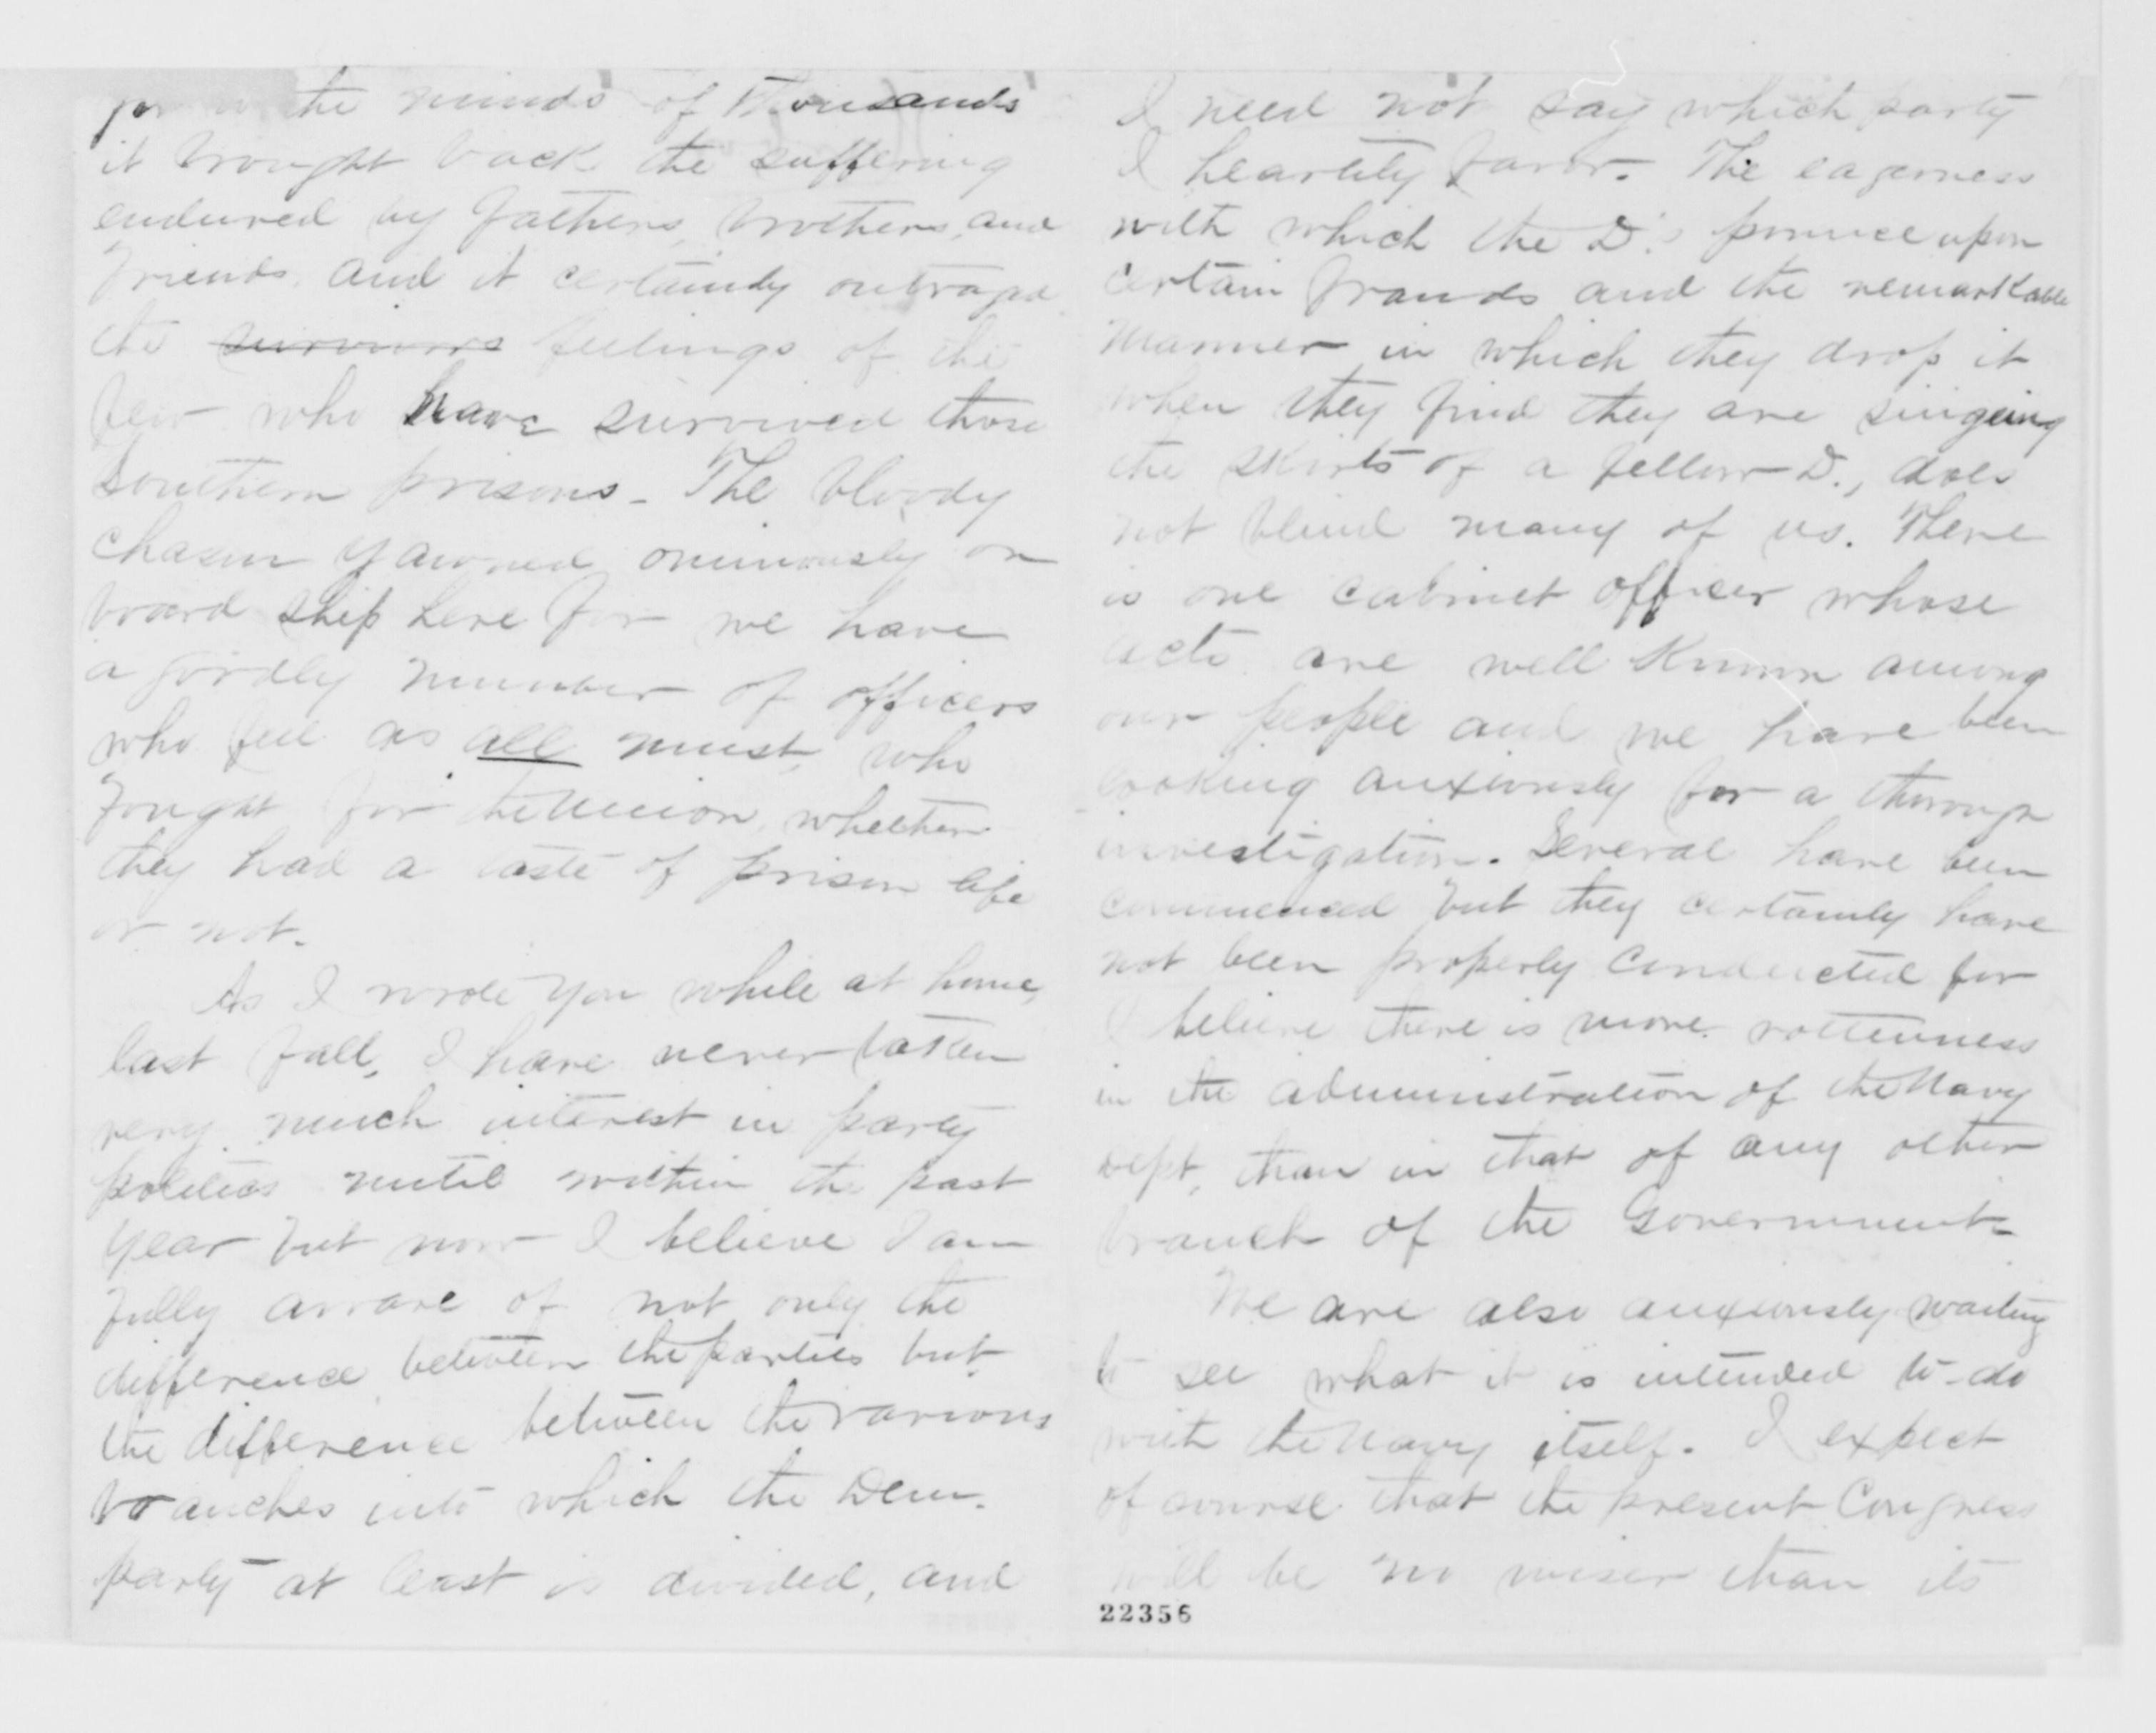 for in the minds of thousands
it brought back the suffering
endured by fathers, brothers, and
friends, and it certainly outraged
the survivors feelings of the
few who have survived those
Southern prisons - The bloody
chasm yawned ominously on
board ship here for we have
a goodly number of officers
who feel as all must, who
fought for the Union, whether
they had a taste of prison life
or not.
As I wrote you while at home,
last fall, I have never taken
very much interest in party
politics until within the past
year but now I believe I am
fully aware of not only the
difference between the parties but
the difference between the various
branches into which the Dem.
party at least is divided, and
I need not say which party
I heartily favor. The eagerness
with which the D.'s pounce upon
certain frauds and the remarkable
manner in which they drop it
when they find they are singeing
the skirts of a fellow D., does
not blind many of us. There
is one cabinet officer whose
acts are well known among
our people and we have been
looking anxiously for a thorough
investigation. Several have been
commenced but they certainly have
not been properly conducted for
I believe there is more rottenness
in the administration of the Navy
Dept, than in that of any other
branch of the Government.
We are also anxiously waiting
to see what it is intended to do
with the Navy itself. I expect
of course that the present Congress
will be no wiser than its
22356